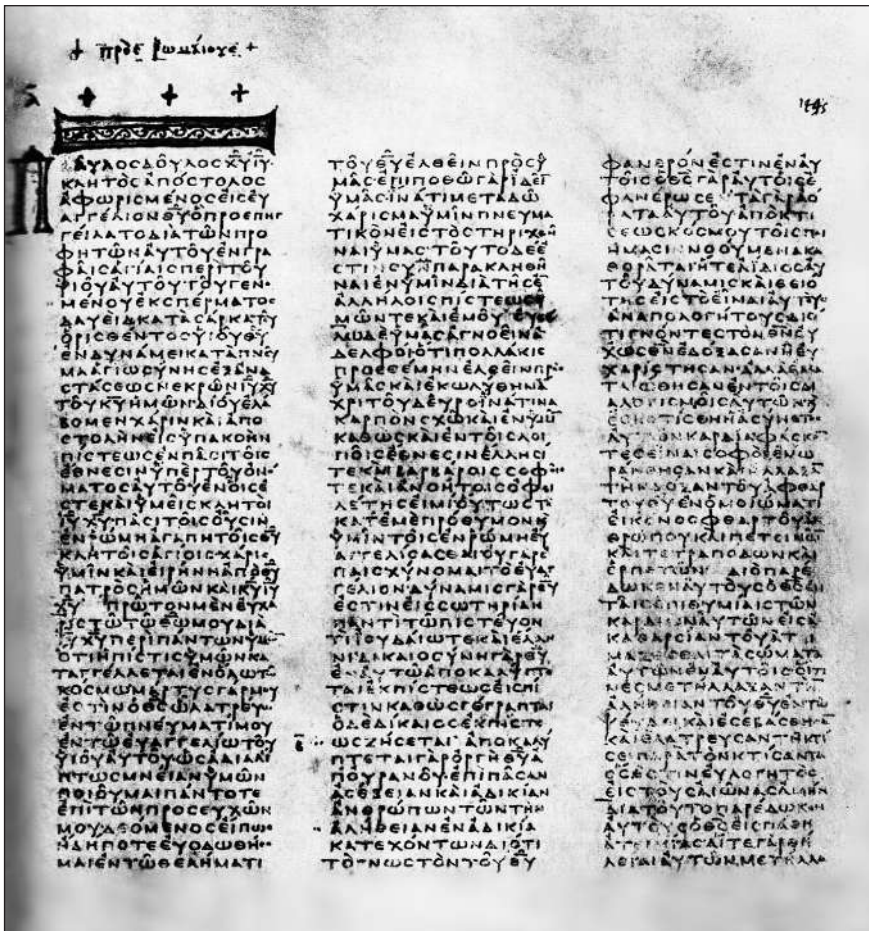 + πρὸς ῥωμαίους +
1445
ΠΑΥΛΟΣΔΟΥΛΟΣΧΥΙΥ
ΚΛΗΤΟΣΑΠΟΣΤΟΛΟΣ
ΑΦΩΡΙΣΜΕΝΟΣΕΙΣΕΥ
ΑΓΓΕΛΙΟΝΘΥΟΠΡΟΕΠΗΓ
ΓΕΙΛΑΤΟΔΙΑΤΩΝΠΡΟ
ΦΗΤΩΝΑΥΤΟΥΕΝΓΡΑ
ΦΑΙΣΑΓΙΑΙΣΠΕΡΙΤΟΥ
ΥΙΟΥΑΥΤΟΥΤΟΥΓΕΝΟ
ΜΕΝΟΥΕΚΣΠΕΡΜΑΤΟΣ
ΔΑΥΕΙΔΚΑΤΑΣΑΡΚΑΤΟΥ
ΟΡΙΣΘΕΝΤΟΣΥΙΟΥΘΥ
ΕΝΔΥΝΑΜΕΙΚΑΤΑΠΝΕΥ
ΜΑΑΓΙΩΣΥΝΗΣΕΞΑΝΑ
ΣΤΑΣΕΩΣΝΕΚΡΩΝΙΥΧΥ
ΤΟΥΚΥΗΜΩΝΔΙΟΥΕΛΑ
ΒΟΜΕΝΧΑΡΙΝΚΑΙΑΠΟ
ΣΤΟΛΗΝΕΙΣΥΠΑΚΟΗΝ
ΠΙΣΤΕΩΣΕΝΠΑΣΙΤΟΙΣ
ΕΘΝΕΣΙΝΥΠΕΡΤΟΥΟΝΟ
ΜΑΤΟΣΑΥΤΟΥΕΝΟΙΣΕ
ΣΤΕΚΑΙΥΜΕΙΣΚΛΗΤΟΙ
ΙΥΧΥΠΑΣΙΤΟΙΣΟΥΣΙΝ
ΕΝΡΩΜΗΑΓΑΠΗΤΟΙΣΘΥ
ΚΛΗΤΟΙΣΑΓΙΟΙΣΧΑΡΙΣ
ΥΜΙΝΚΑΙΕΙΡΗΝΗΑΠΟΘΥ
ΠΑΤΡΟΣΗΜΩΝΚΑΙΚΥΙΥ
ΧΥ ΠΡΩΤΟΝΜΕΝΕΥΧΑ
ΡΙΣΤΩΤΩΘΕΩΜΟΥΔΙΑ
ΙΥΧΥΠΕΡΙΠΑΝΤΩΝΥΜΩ
ΟΤΙΗΠΙΣΤΙΣΥΜΩΝΚΑ
ΤΑΓΓΕΛΛΕΤΑΙΕΝΟΛΩΤΩ
ΚΟΣΜΩΜΑΡΤΥΣΓΑΡΜΟΥ
ΕΣΤΙΝΟΘΣΩΛΑΤΡΕΥΩ
ΕΝΤΩΠΝΕΥΜΑΤΙΜΟΥ
ΕΝΤΩΕΥΑΓΓΕΛΙΩΤΟΥ
ΥΙΟΥΑΥΤΟΥΩΣΑΔΙΑΛΙ
ΠΤΩΣΜΝΕΙΑΝΥΜΩΝ
ΠΟΙΟΥΜΑΙΠΑΝΤΟΤΕ
ΕΠΙΤΩΝΠΡΟΣΕΥΧΩΝ
ΜΟΥΔΕΟΜΕΝΟΣΕΙΠΩΣ
ΗΔΗΠΟΤΕΕΥΟΔΩΘΗΣΟ
ΜΑΙΕΝΤΩΘΕΛΗΜΑΤΙ
ΤΟΥΘΥΕΛΘΕΙΝΠΡΟΣΥ
ΜΑΣΕΠΙΠΟΘΩΓΑΡΙΔΕΙ
ΥΜΑΣΙΝΑΤΙΜΕΤΑΔΩ
ΧΑΡΙΣΜΑΥΜΙΝΠΝΕΥΜΑ
ΤΙΚΟΝΕΙΣΤΟΣΤΗΡΙΧΘΗ
ΝΑΙΥΜΑΣΤΟΥΤΟΔΕΕ
ΣΤΙΝΣΥΝΠΑΡΑΚΛΗΘΗ
ΝΑΙΕΝΥΜΙΝΔΙΑΤΗΣΕ
ΑΛΛΗΛΟΙΣΠΙΣΤΕΩΣΥ
ΜΩΝΤΕΚΑΙΕΜΟΥ ΟΥΘΕ
ΛΩΔΕΥΜΑΣΑΓΝΟΕΙΝΑ
ΔΕΛΦΟΙΟΤΙΠΟΛΛΑΚΙΣ
ΠΡΟΕΘΕΜΗΝΕΛΘΕΙΝΠΡΟΣ
ΥΜΑΣΚΑΙΕΚΩΛΥΘΗΝΑ
ΧΡΙΤΟΥΔΕΥΡΟΙΝΑΤΙΝΑ
ΚΑΡΠΟΝΣΧΩΚΑΙΕΝΥΜΙ
ΚΑΘΩΣΚΑΙΕΝΤΟΙΣΛΟΙ
ΠΟΙΣΕΘΝΕΣΙΝΕΛΛΗΣΙ
ΤΕΚΑΙΒΑΡΒΑΡΟΙΣΣΟΦΟΙΣ
ΤΕΚΑΙΑΝΟΗΤΟΙΣΟΦΕΙ
ΛΕΤΗΣΕΙΜΙΟΥΤΩΣΤΟ
ΚΑΤΕΜΕΠΡΟΘΥΜΟΝΚΑΙ
ΥΜΙΝΤΟΙΣΕΝΡΩΜΗΕΥ
ΑΓΓΕΛΙΣΑΣΘΑΙΟΥΓΑΡΕ
ΠΑΙΣΧΥΝΟΜΑΙΤΟΕΥΑΓ
ΓΕΛΙΟΝΔΥΝΑΜΙΣΓΑΡΘΥ
ΕΣΤΙΝΕΙΣΣΩΤΗΡΙΑΝ
ΠΑΝΤΙΤΩΠΙΣΤΕΥΟΝ
ΤΙΙΟΥΔΑΙΩΤΕΚΑΙΕΛΛΗ
ΝΙΔΙΚΑΙΟΣΥΝΗΓΑΡΘΥ
ΕΝΑΥΤΩΑΠΟΚΑΛΥΠΤΕ
ΤΑΙΕΚΠΙΣΤΕΩΣΕΙΣΠΙ
ΣΤΙΝΚΑΘΩΣΓΕΓΡΑΠΤΑΙ
ΟΔΕΔΙΚΑΙΟΣΕΚΠΙΣΤΕ
ΩΣΖΗΣΕΤΑΙ ΑΠΟΚΑΛΥ
ΠΤΕΤΑΙΓΑΡΟΡΓΗΘΥΑ
ΠΟΥΡΑΝΟΥΕΠΙΠΑΣΑΝ
ΑΣΕΒΕΙΑΝΚΑΙΑΔΙΚΙΑΝ
ΑΝΘΡΩΠΩΝΤΩΝΤΗΝ
ΑΛΗΘΕΙΑΝΕΝΑΔΙΚΙΑ
ΚΑΤΕΧΟΝΤΩΝΔΙΟΤΙ
ΤΟΓΝΩΣΤΟΝΤΟΥΘΥ
ΦΑΝΕΡΟΝΕΣΤΙΝΕΝΑΥ
ΤΟΙΣΟΘΣΓΑΡΑΥΤΟΙΣΕ
ΦΑΝΕΡΩΣΕΤΑΓΑΡΑΟ
ΡΑΤΑΑΥΤΟΥΑΠΟΚΤΙ
ΣΕΩΣΚΟΣΜΟΥΤΟΙΣΠΟΙ
ΗΜΑΣΙΝΝΟΟΥΜΕΝΑΚΑ
ΘΟΡΑΤΑΙΗΤΕΑΙΔΙΟΣΑΥ
ΤΟΥΔΥΝΑΜΙΣΚΑΙΘΕΙΟ
ΤΗΣΕΙΣΤΟΕΙΝΑΙΑΥΤΟΥΣ
ΑΝΑΠΟΛΟΓΗΤΟΥΣΔΙΟ
ΤΙΓΝΟΝΤΕΣΤΟΝΘΝΟΥ
ΧΩΣΘΝΕΔΟΞΑΣΑΝΗΕΥ
ΧΑΡΙΣΤΗΣΑΝΑΛΛΑΕΜΑ
ΤΑΙΩΘΗΣΑΝΕΝΤΟΙΣΔΙ
ΑΛΟΓΙΣΜΟΙΣΑΥΤΩΝΚΑΙ
ΕΣΚΟΤΙΣΘΗΗΑΣΥΝΕΤΟΣ
ΑΥΤΩΝΚΑΡΔΙΑΦΑΣΚΟΝ
ΤΕΣΕΙΝΑΙΣΟΦΟΙΕΜΩ
ΡΑΝΘΗΣΑΝΚΑΙΗΛΛΑΞΑΝ
ΤΗΝΔΟΞΑΝΤΟΥΑΦΘΑΡ
ΤΟΥΘΥΕΝΟΜΟΙΩΜΑΤΙ
ΕΙΚΟΝΟΣΦΘΑΡΤΟΥΑΝ
ΘΡΩΠΟΥΚΑΙΠΕΤΕΙΝΩΝ
ΚΑΙΤΕΤΡΑΠΟΔΩΝΚΑΙ
ΕΡΠΕΤΩΝ ΔΙΟΠΑΡΕ
ΔΩΚΕΝΑΥΤΟΥΣΟΘΣΕΝ
ΤΑΙΣΕΠΙΘΥΜΙΑΙΣΤΩΝ
ΚΑΡΔΙΩΝΑΥΤΩΝΕΙΣΑ
ΚΑΘΑΡΣΙΑΝΤΟΥΑΤΙ
ΜΑΖΕΣΘΑΙΤΑΣΩΜΑΤΑ
ΑΥΤΩΝΕΝΑΥΤΟΙΣΟΙΤΙ
ΝΕΣΜΕΤΗΛΛΑΞΑΝΤΗΝ
ΑΛΗΘΕΙΑΝΤΟΥΘΥΕΝΤΩ
ΨΕΥΔΕΙΚΑΙΕΣΕΒΑΣΘΗΣΑ
ΚΑΙΕΛΑΤΡΕΥΣΑΝΤΗΚΤΙ
ΣΕΙΠΑΡΑΤΟΝΚΤΙΣΑΝΤΑ
ΟΣΕΣΤΙΝΕΥΛΟΓΗΤΟΣ
ΕΙΣΤΟΥΣΑΙΩΝΑΣΑΜΗΝ
ΔΙΑΤΟΥΤΟΠΑΡΕΔΩΚΕΝ
ΑΥΤΟΥΣΟΘΣΕΙΣΠΑΘΗ
ΑΤΕΙΜΙΑΣΑΙΤΕΓΑΡΘΗ
ΛΕΙΑΙΑΥΤΩΝΜΕΤΗΛΛΑ